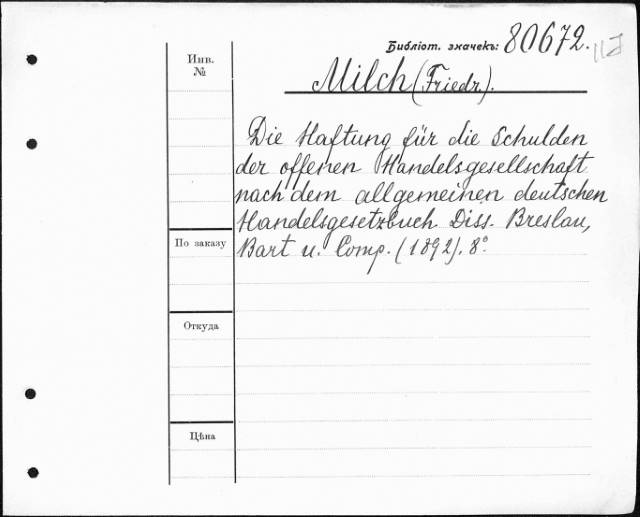 Библіот. значекъ: 80672.
Инв.
№
Milch (Friedr.).
Die Haftung für die Schulden
der offenen Handelsgesellschaft
nach dem allgemeinen deutschen
Handelsgesetzbuch Diss. Breslau,
По заказу
Bart u. Comp. (1892). 8°
Откуда
Цѣна